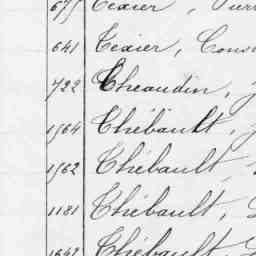 675 Texier, Pierr
641 Texier, Cons
722 Theaudin, J
1964 Thébault, J
1962 Thébault,
1181 Thébault,
Thébault,